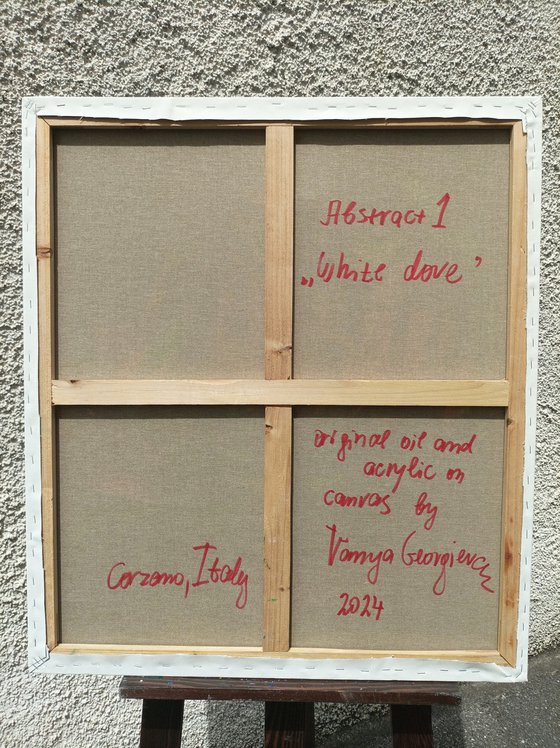 Abstract 1
„White dove’
orginal oil and
acrylic on
canvas by
Vanya Georgieva
2024
Corzano, Italy